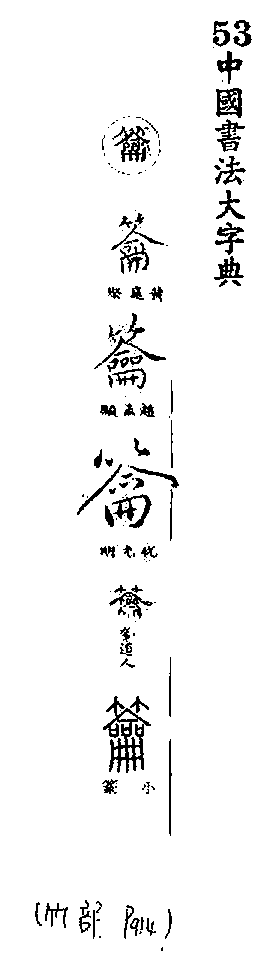 53 中國書法大字典
籥
籥
籥
趙孟頫
籥
祝允明
籥
道人
籥
小篆
(竹部 P914)